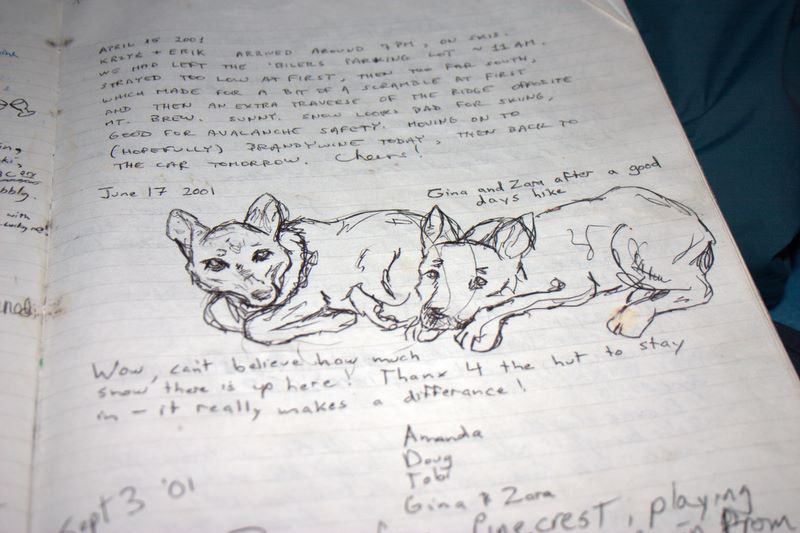 APRIL 15 2001
KRZYS + ERIK ARRIVED AROUND 7 PM, ON SKIS.
WE HAD LEFT THE BAILERS PARKING LOT ~ 11 AM.
STRAYED TOO LOW AT FIRST, THEN TOO FAR SOUTH,
WHICH MADE FOR A BIT OF A SCRAMBLE AT FIRST
AND THEN AN EXTRA TRAVERSE OF THE RIDGE OPPOSITE
MT. BREW. SUNNY. SNOW LOOKS BAD FOR SKIING,
GOOD FOR AVALANCHE SAFETY. MOVING ON TO
(HOPEFULLY) BRANDYWINE TODAY, THEN BACK TO
THE CAR TOMORROW. Cheers!
June 17 2001
Gina and Zara after a good
days hike
Wow, can't believe how much
snow there is up here! Thanx 4 the hut to stay
in – it really makes a difference!
Amanda
Doug
Tobi
Gina & Zara
Sept 3 '01
Pinecrest, playing
from